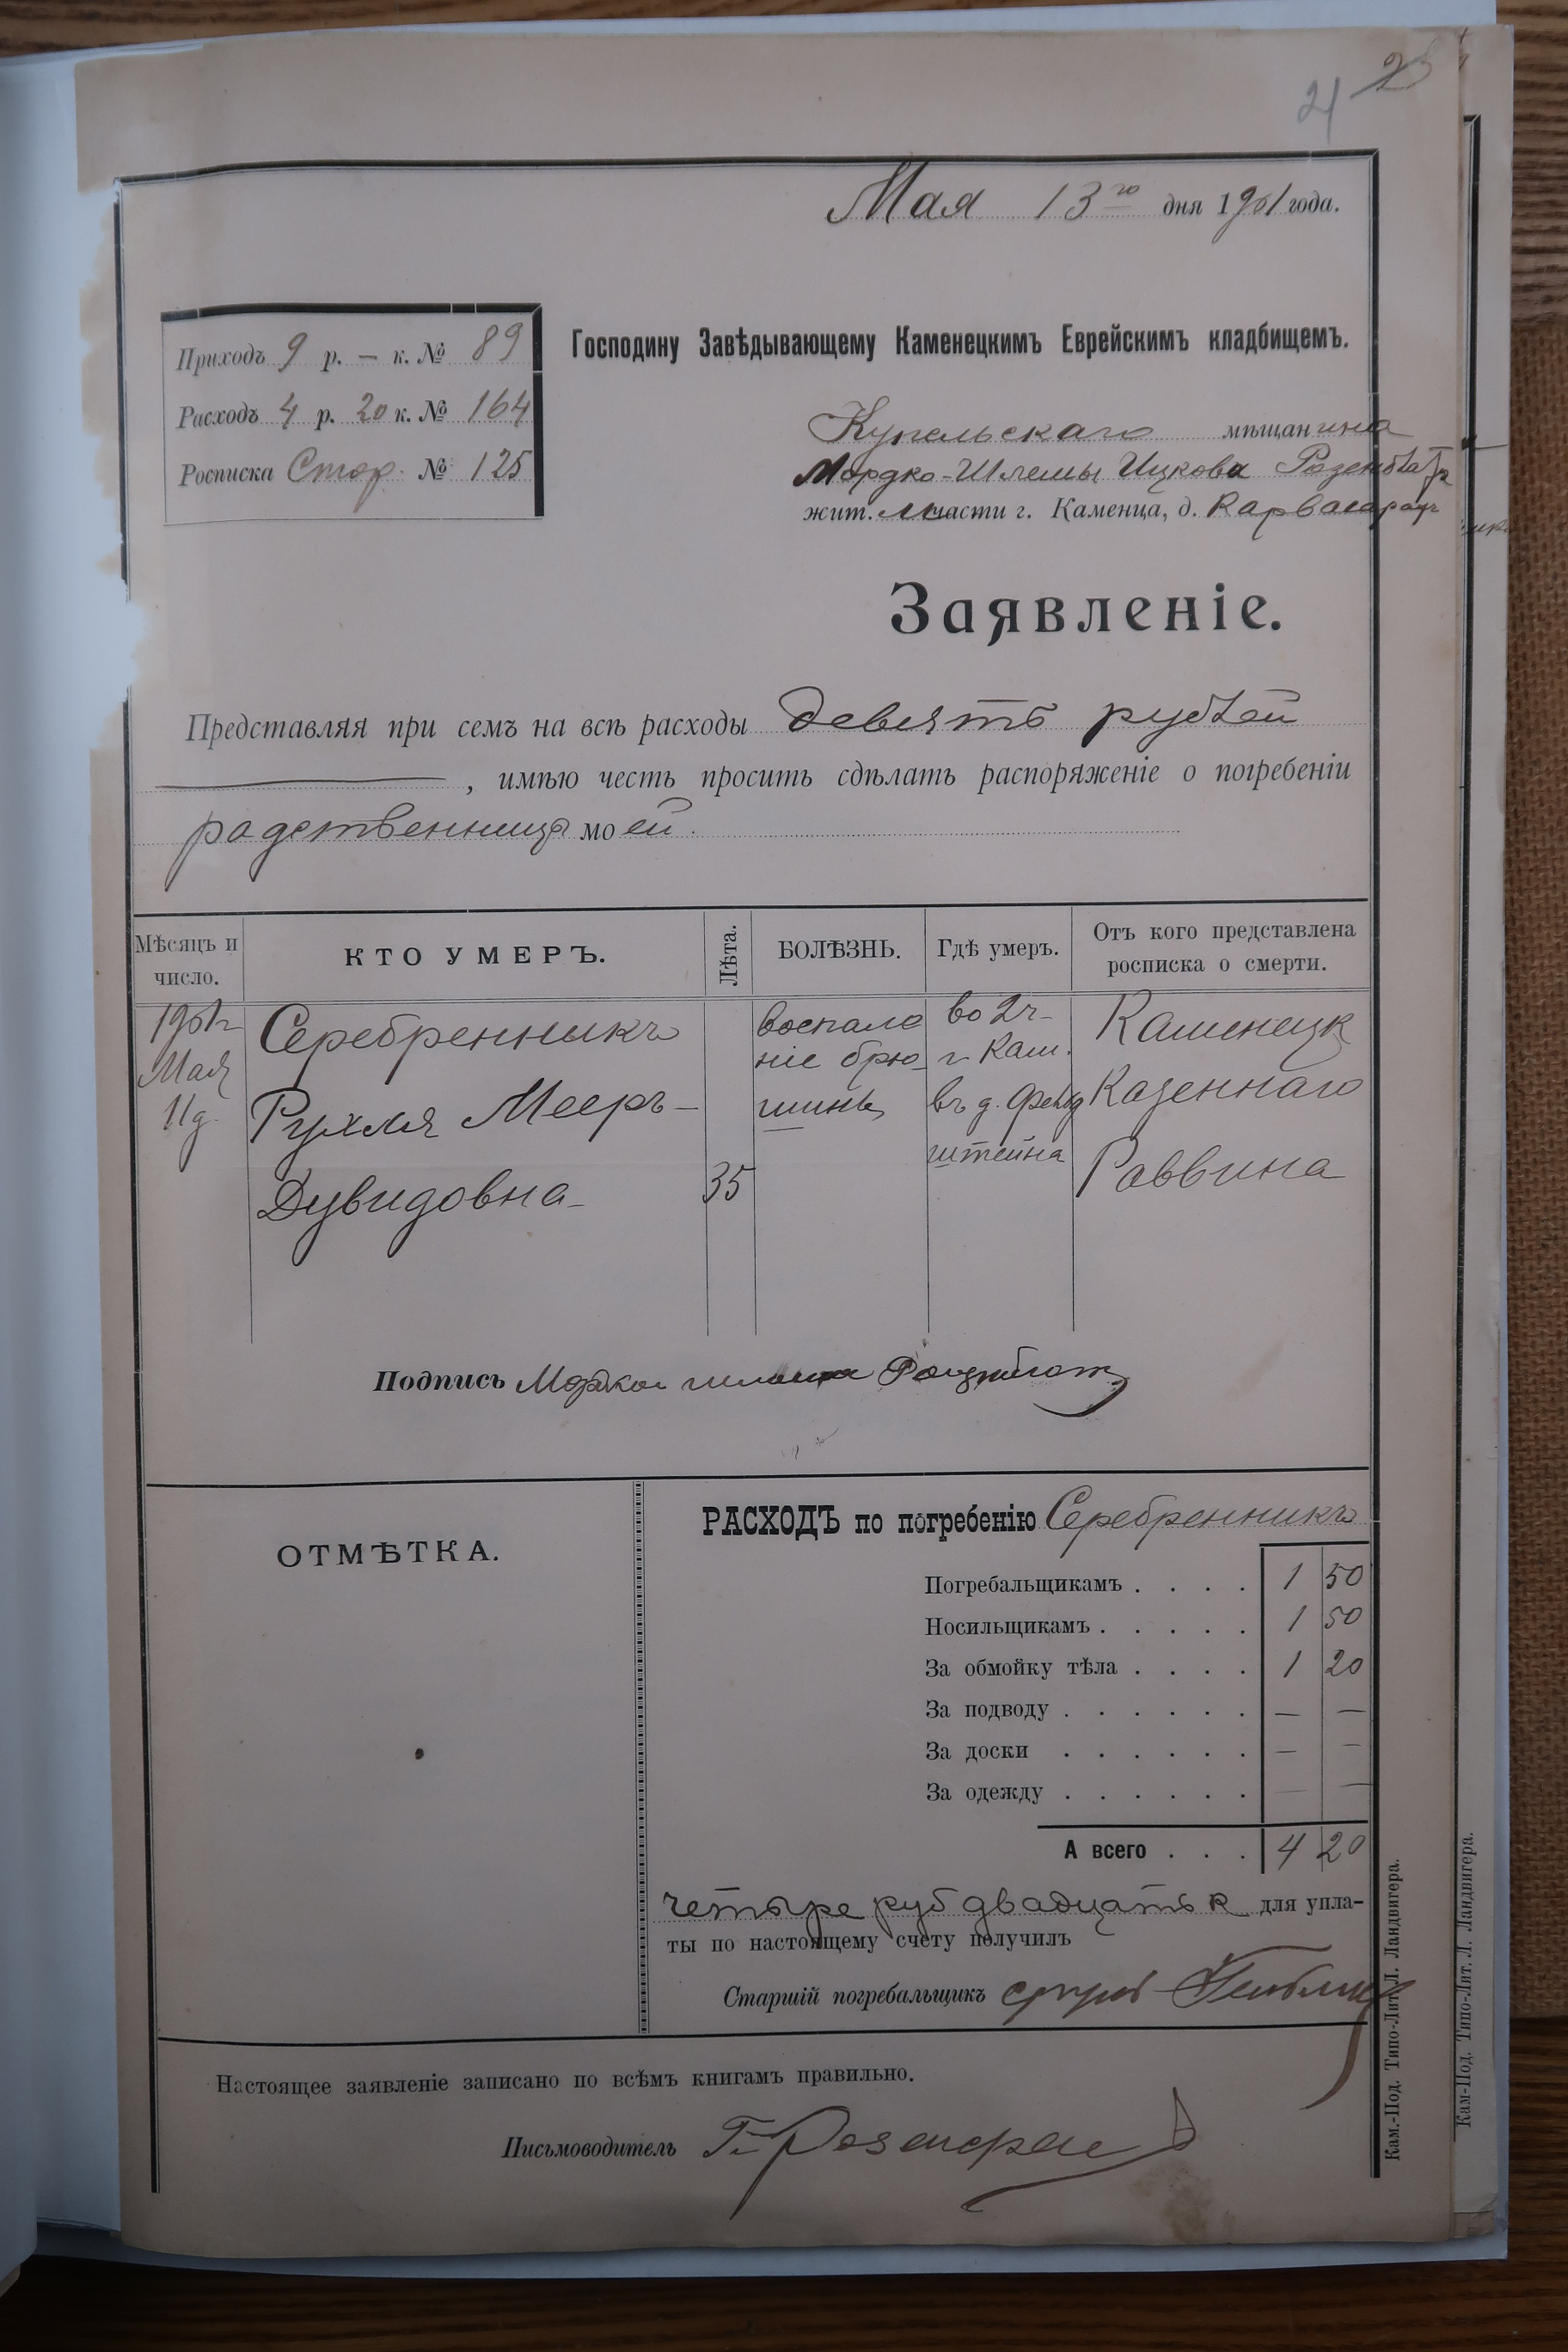 21 23
Мая 13го дня 1901 года.
Приходъ 9 р. — к. № 89
Расходъ 4 р. 20 к. № 164
Росписка Стор. № 125
Господину Завѣдывающему Каменецкимъ Еврейскимъ кладбищемъ.
Купельскаго мѣщанина
Мордко-Шлемы Ицкова
жит. части г. Каменца, д. Карвасарах
Заявленіе.
Представляя при семъ на всѣ расходы девять рублей
, имѣю честь просить сдѣлать распоряженіе о погребеніи
родственницы моей.
Мѣсяцъ и число.
КТО УМЕРЪ.
Лѣта.
БОЛѢЗНЬ.
Гдѣ умеръ.
Отъ кого представлена росписка о смерти.
1901г
Мая
11д
Серебренникъ
Рухля Мееръ-
Дувидовна
35
воспале
ніе брю
шины
во 2ч
г Кам.
въ д.
штейна
Каменецк
Казеннаго
Раввина
Подпись Мордко
ОТМѢТКА.
РАСХОДЪ по погребенію Серебренникъ
Погребальщикамъ . . . . 1 50
Носильщикамъ . . . . . 1 50
За обмойку тѣла . . . . 1 20
За подводу . . . . . . — —
За доски . . . . . . — —
За одежду . . . . . . — —
А всего . . . 4 20
четыре руб двадцать к для упла-
ты по настоящему счету получилъ
Старшій погребальщикъ
Настоящее заявленіе записано по всѣмъ книгамъ правильно.
Письмоводитель
Кам.-Под. Типо-Лит. Л. Ландвигера.
Кам-Под. Типо-Лит. Л. Ландвигера.